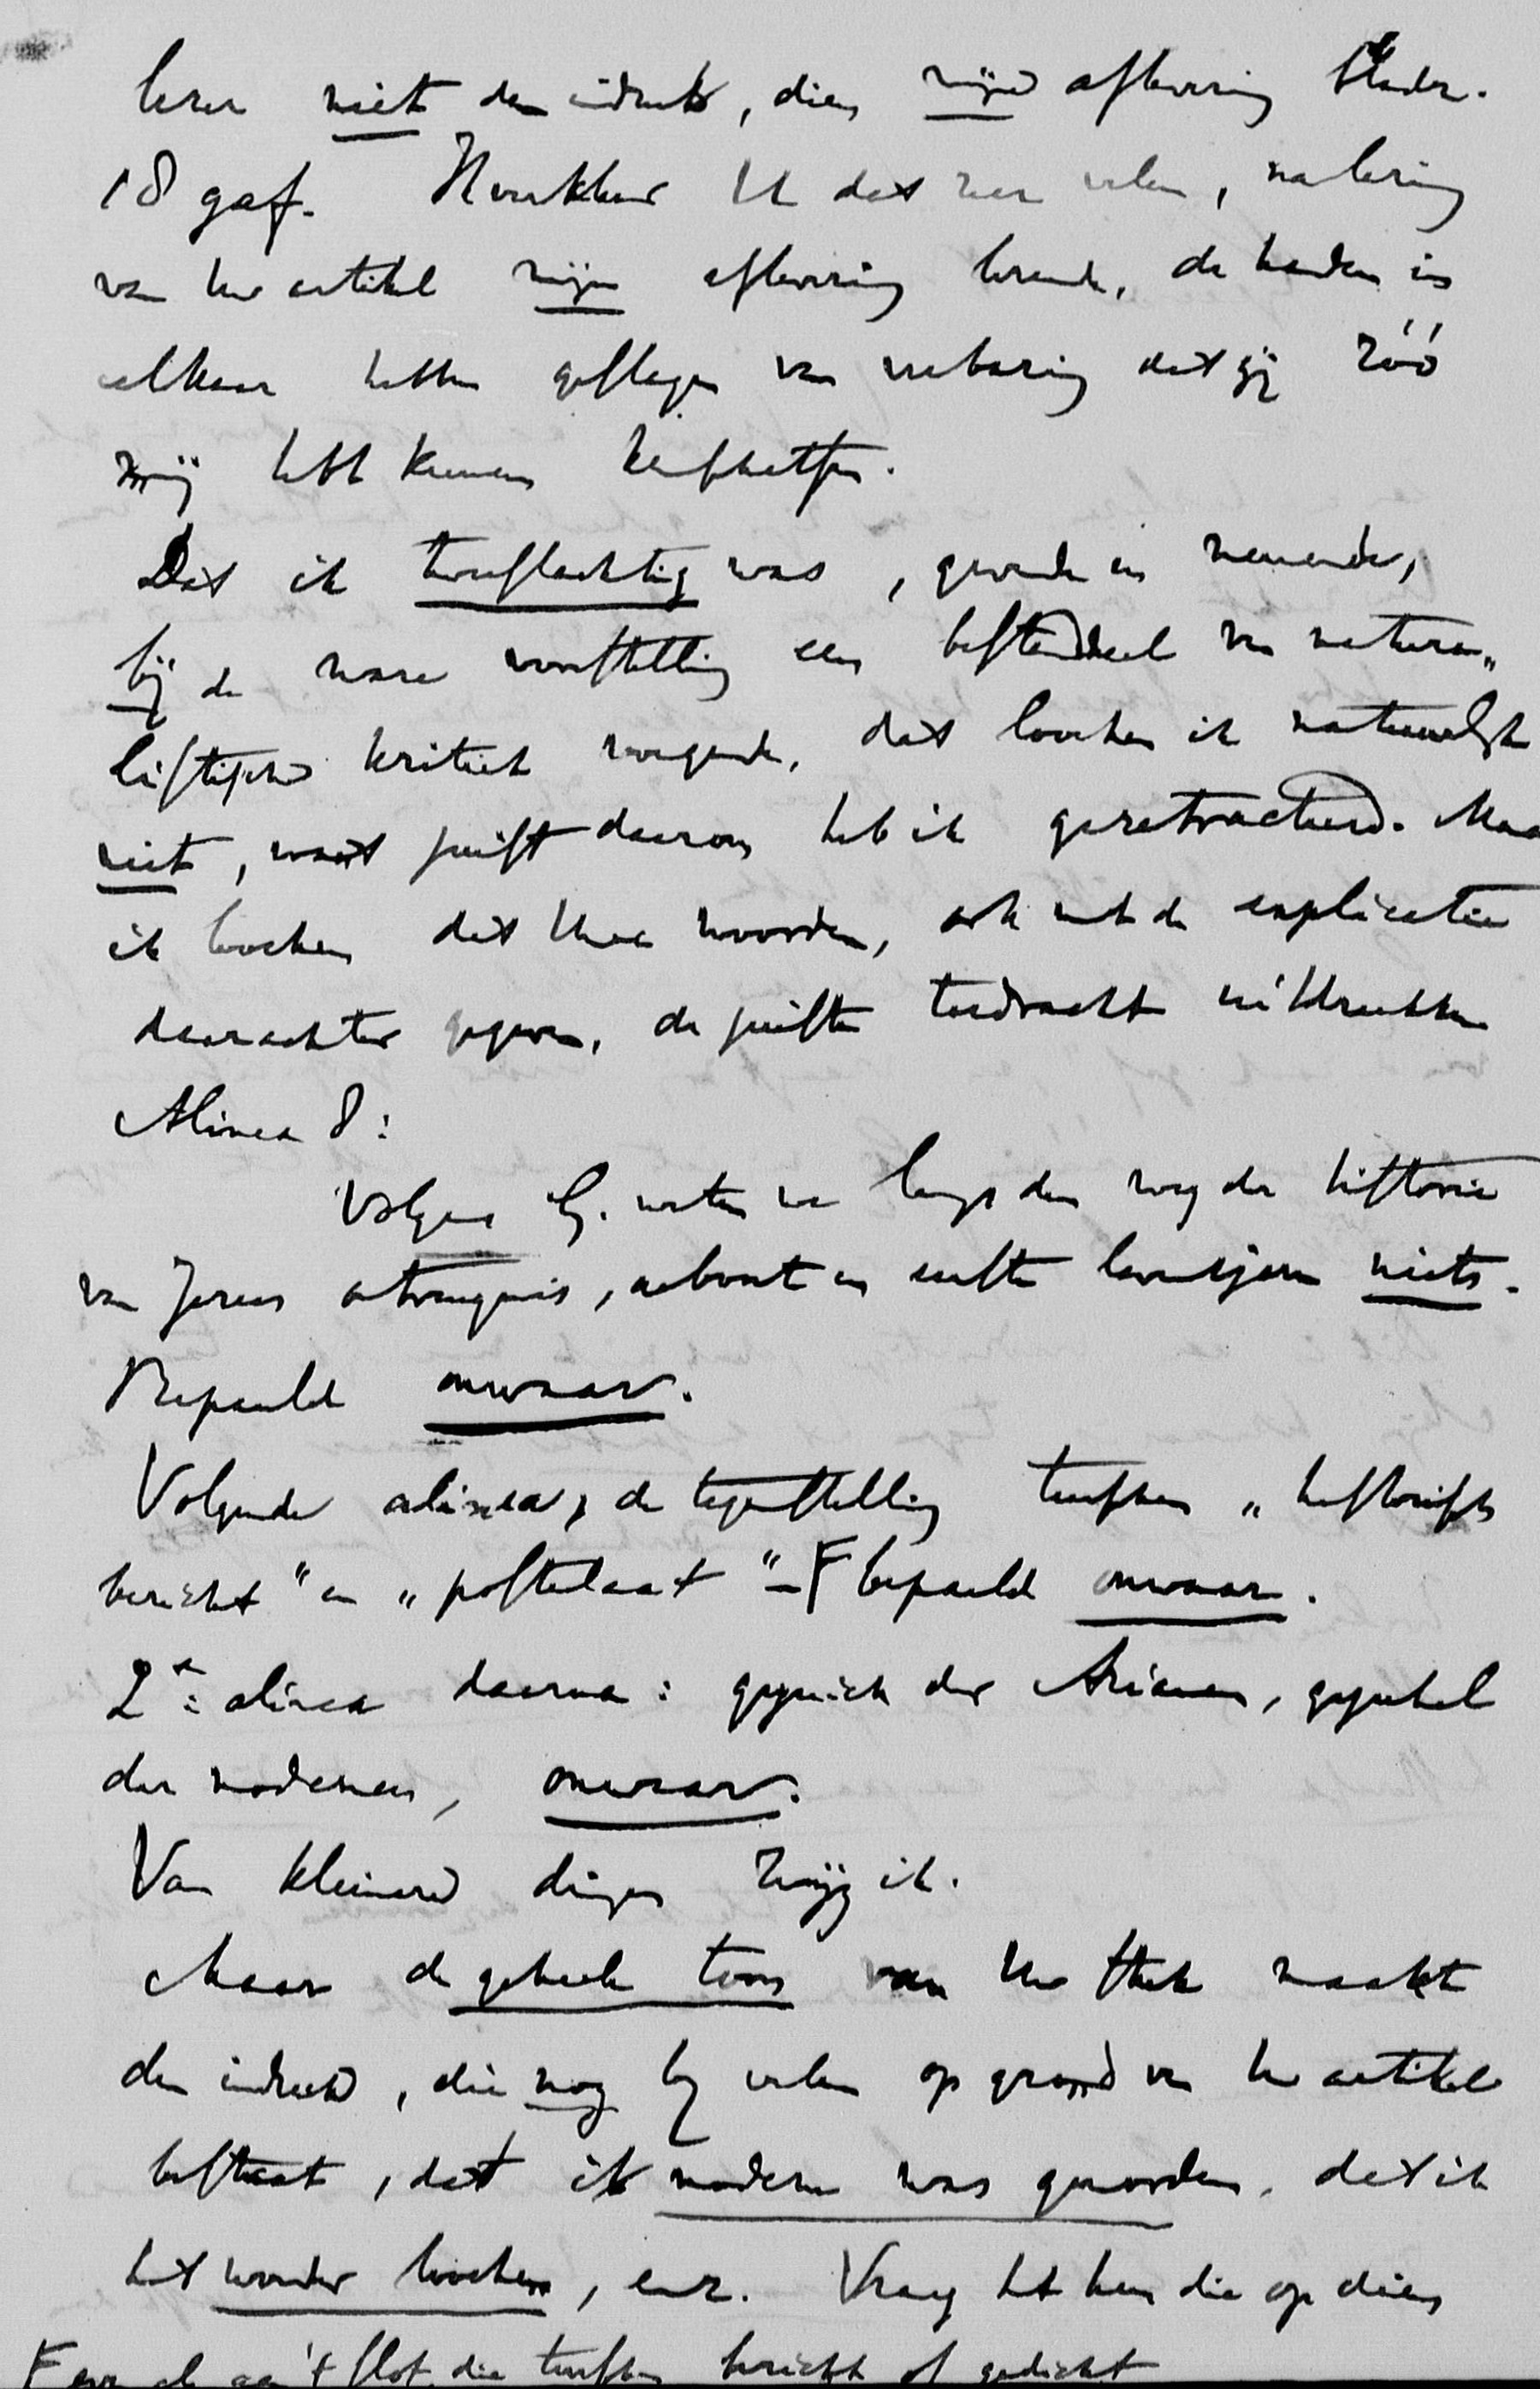 lezer niet den indruk, dien mijne aflevering bladz.
18 gaf. Verklaar U dat zeer velen, na lezing
van Uw artikel mijne aflevering lezende, de handen in
elkaar hebben geslagen van verbazing dat gij zóó
mij hebt kunnen
Dat ik twijfelachtig was, gewonde en
bij de ware voorstelling een bestanddeel van natura„
listische kritiek voegende, dat loochen ik natuurlijk
niet, want juist daarom heb ik geretracteerd. Maar
ik loochen dat Uwe woorden, ook met de explicatie
daarachter gegeven, de juiste toedracht uitdrukken
Alinea 8:
Volgens G. weten we langs den weg der historie
van Jezus ontvangenis, geboorte en eerste levensjaren niets.
Bepaald onwaar.
Volgende alinea, de tegenstelling tusschen „historisch
bericht" en „postulaat" – F bepaald onwaar.
2e alinea daarna: der Arianen,
der modernen, onwaar.
Van kleinere dingen zwijg ik.
Maar de geheele toon van Uw stuk maakt
den indruk, die nog bij velen op grond van Uw artikel
bestaat, dat ik modern was geworden, dat ik
het wonder loochen, enz. Vraag het hen die op dien
F evenals aan 't slot, die tusschen bericht of gedicht